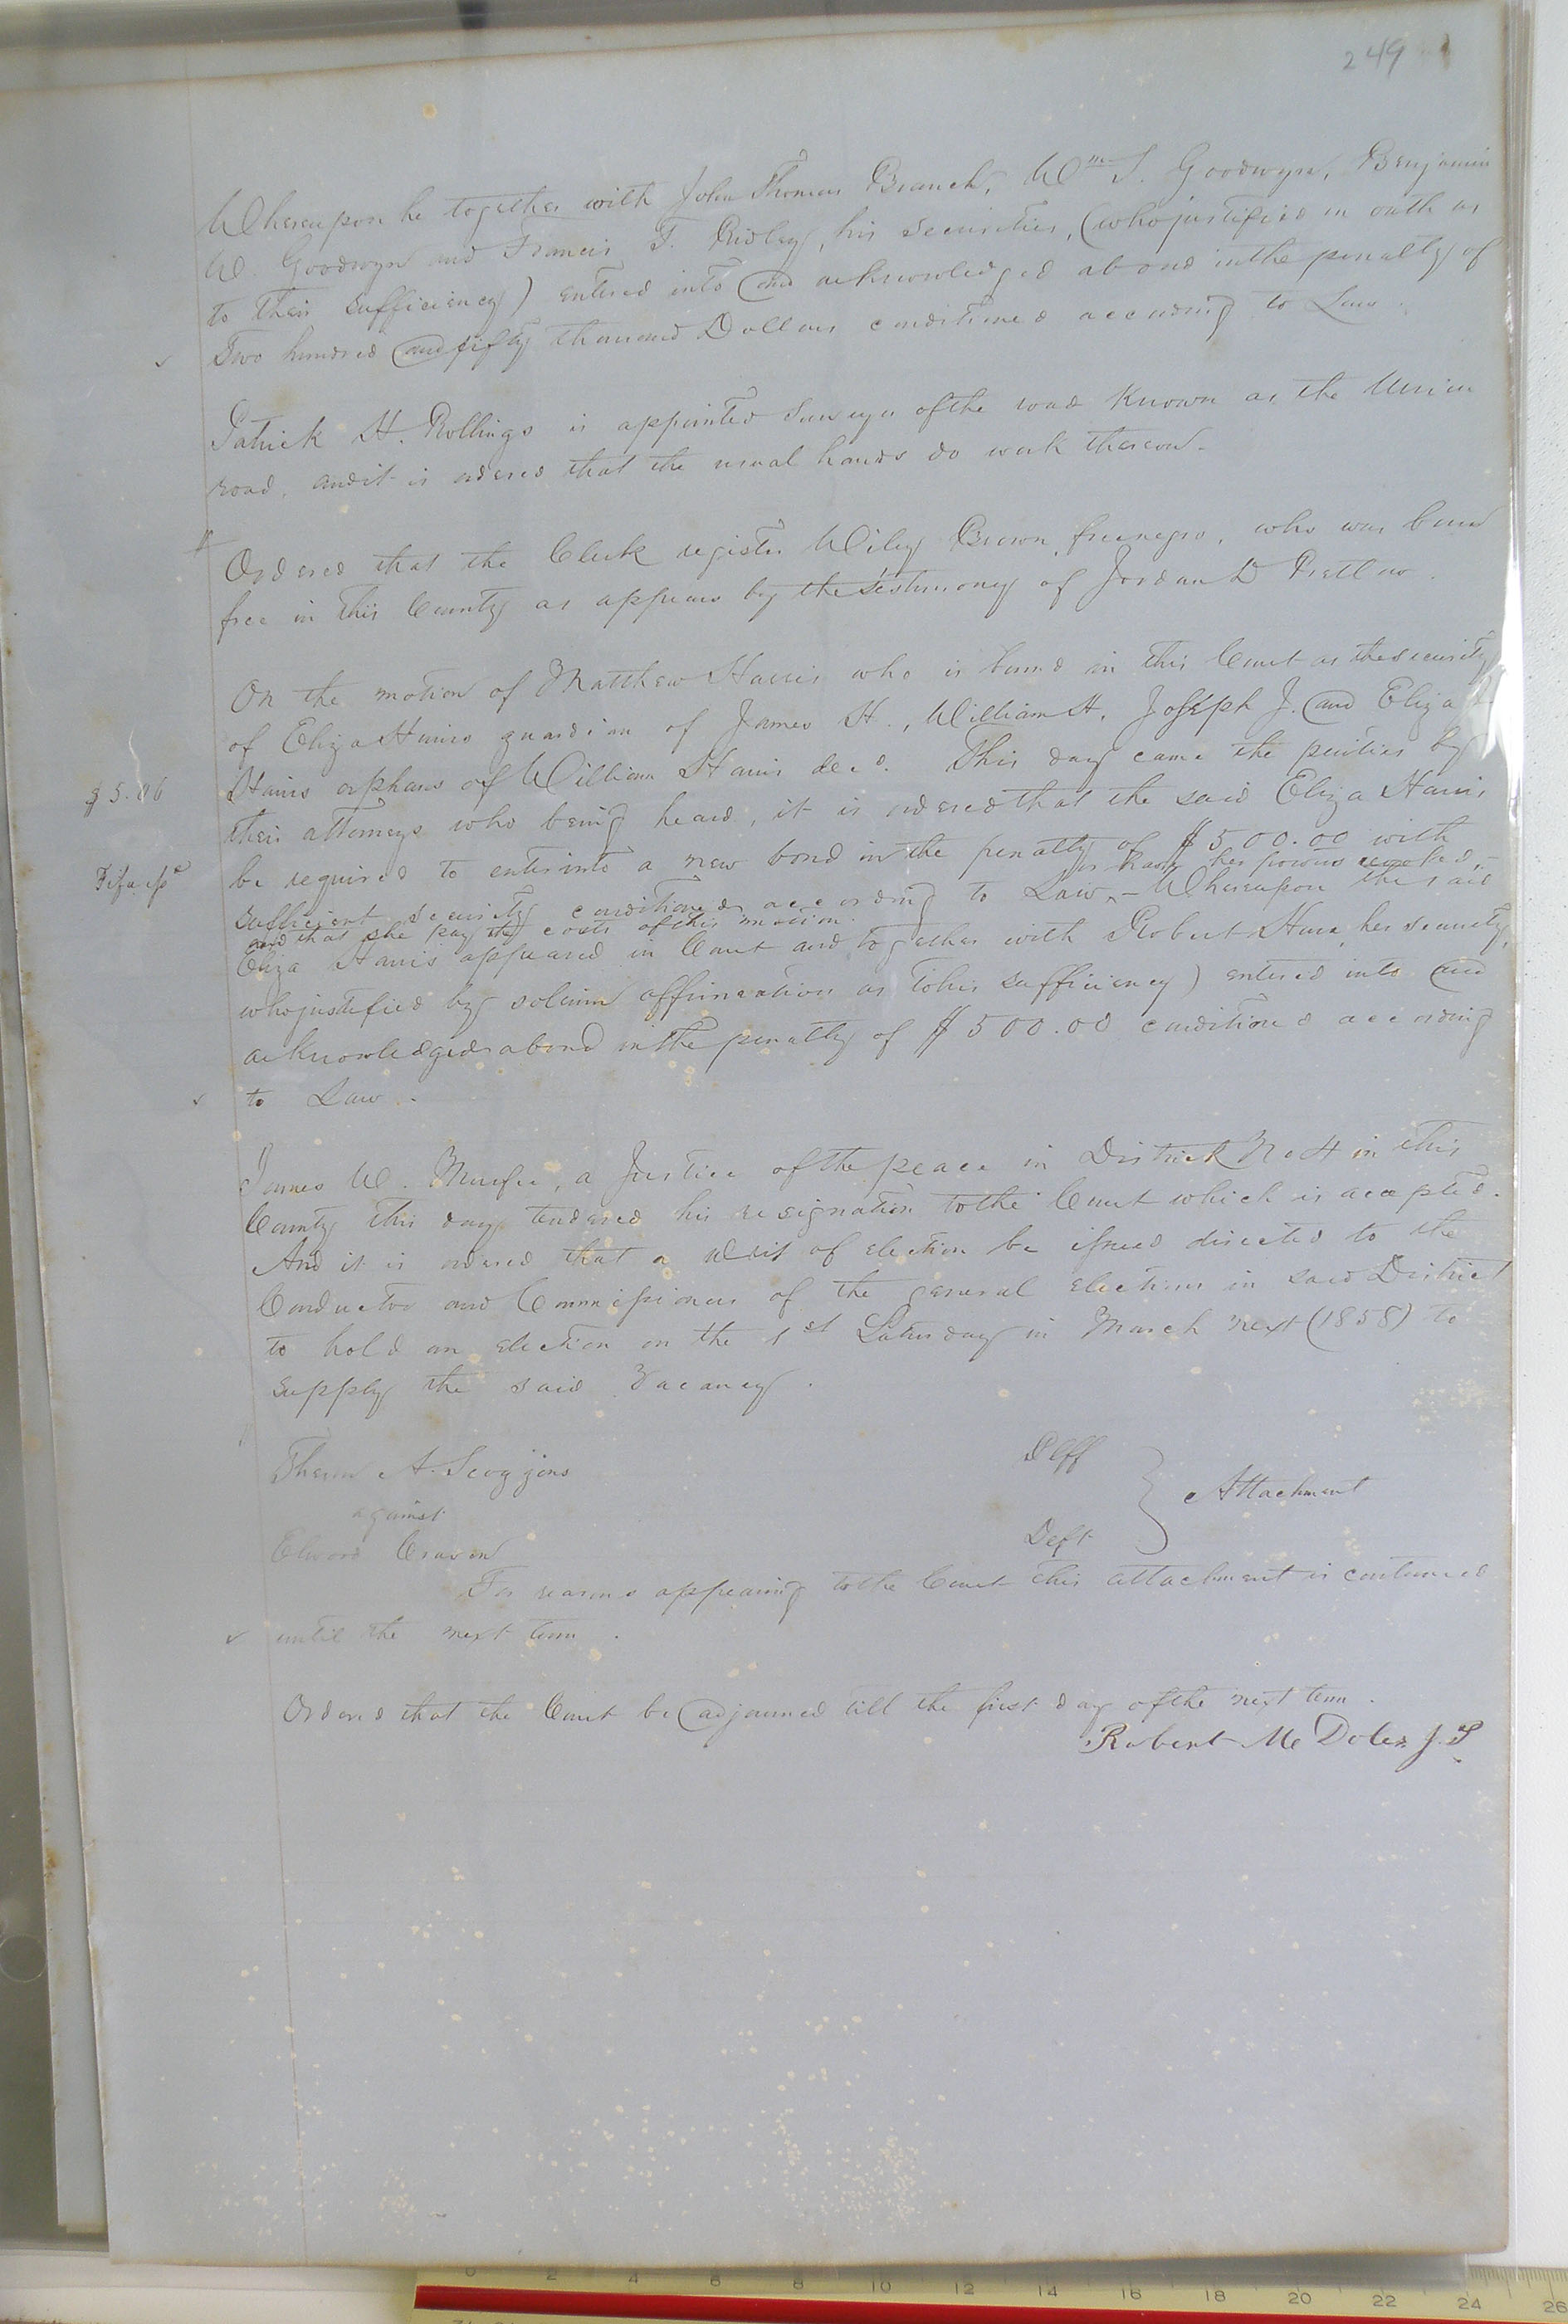 249
Whereupon he together with John Thomas Branch, Wm S. Goodwyn, Benjamin
W. Goodwyn and Francis T. Ridley, his securities, (who justified on oath as
to their sufficiency) entered into and acknowledged a bond in the penalty of
Two hundred and fifty thousand Dollars conditioned according to Law.
Patrick H. Rollings is appointed Surveyor of the road Known as the Union
road, and it is ordered that the usual hands do work thereon.
Ordered that the Clerk register Wiley Brown, free negro, who was born
free in this County as appears by the testimony of Jordan D Pretlow.
On the motion of Matthew Harris who is bound in this Court as the security
of Eliza Harris guardian of James H., William H., Joseph J. and Eliza
Harris orphans of William Harris decd. This day came the parties by
$5.06
their attorneys who being heard, it is ordered that the said Eliza Harris
be required to enter into a new bond in the penalty of $500.00 with
Fi fa
or have her powers revoked,
sufficient security conditioned according to Law,- Whereupon the said
and that she pay the costs of this motion.
Eliza Harris appeared in Court and together with Robert Hare, her security,
who justified by solemn affirmation as to his sufficiency) entered into and
acknowledged a bond in the penalty of $500.00 conditioned according
to Law.
James W. Murfee, a Justice of the peace in District No 4 in this
County this day tendered his resignation to the Court which is accepted.
And it is ordered that a Writ of election be issued directed to the
Conductor and Commissioners of the general elections in said District
to hold an election on the 1st Saturday in March next (1858) to
supply the said Vacancy.
A. Scoggins Plff
against Attachment
Elwood Craven Deft
For reasons appearing to the Court this attachment is continued
until the next term.
Ordered that the Court be adjourned till the first day of the next term.
Robert Mc Doles J.P
0 2 4 6 8 10 12 14 16 18 20 22 24 26